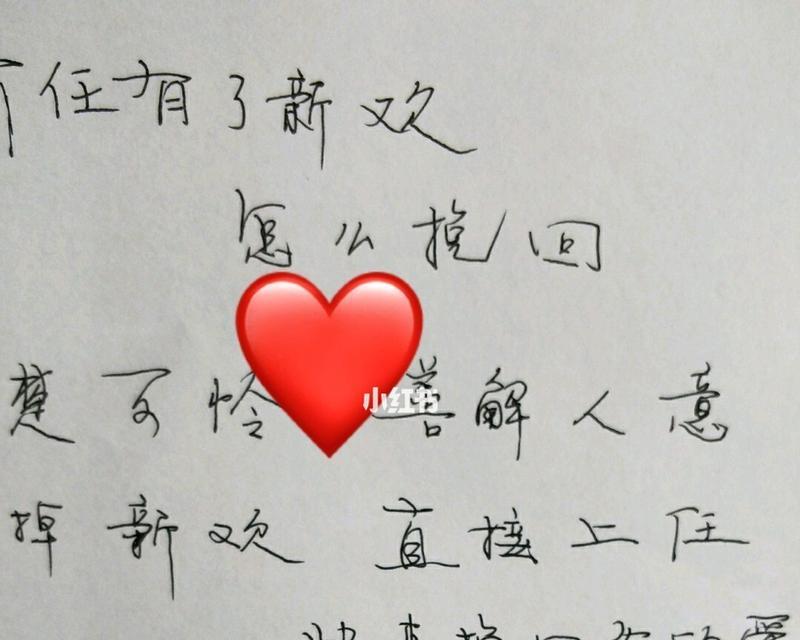 任有了新欢
怎么挽回
楚可怜 善解人意
小红书
掉新欢 直接上任